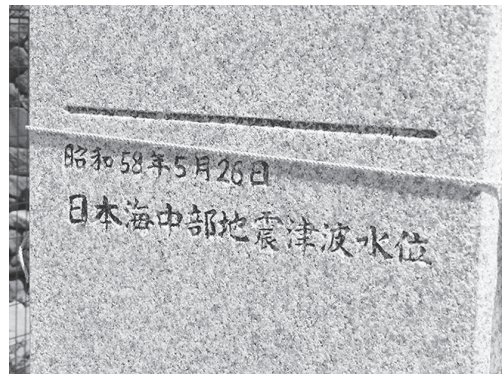 昭和58年5月26日
日本海中部地震津波水位